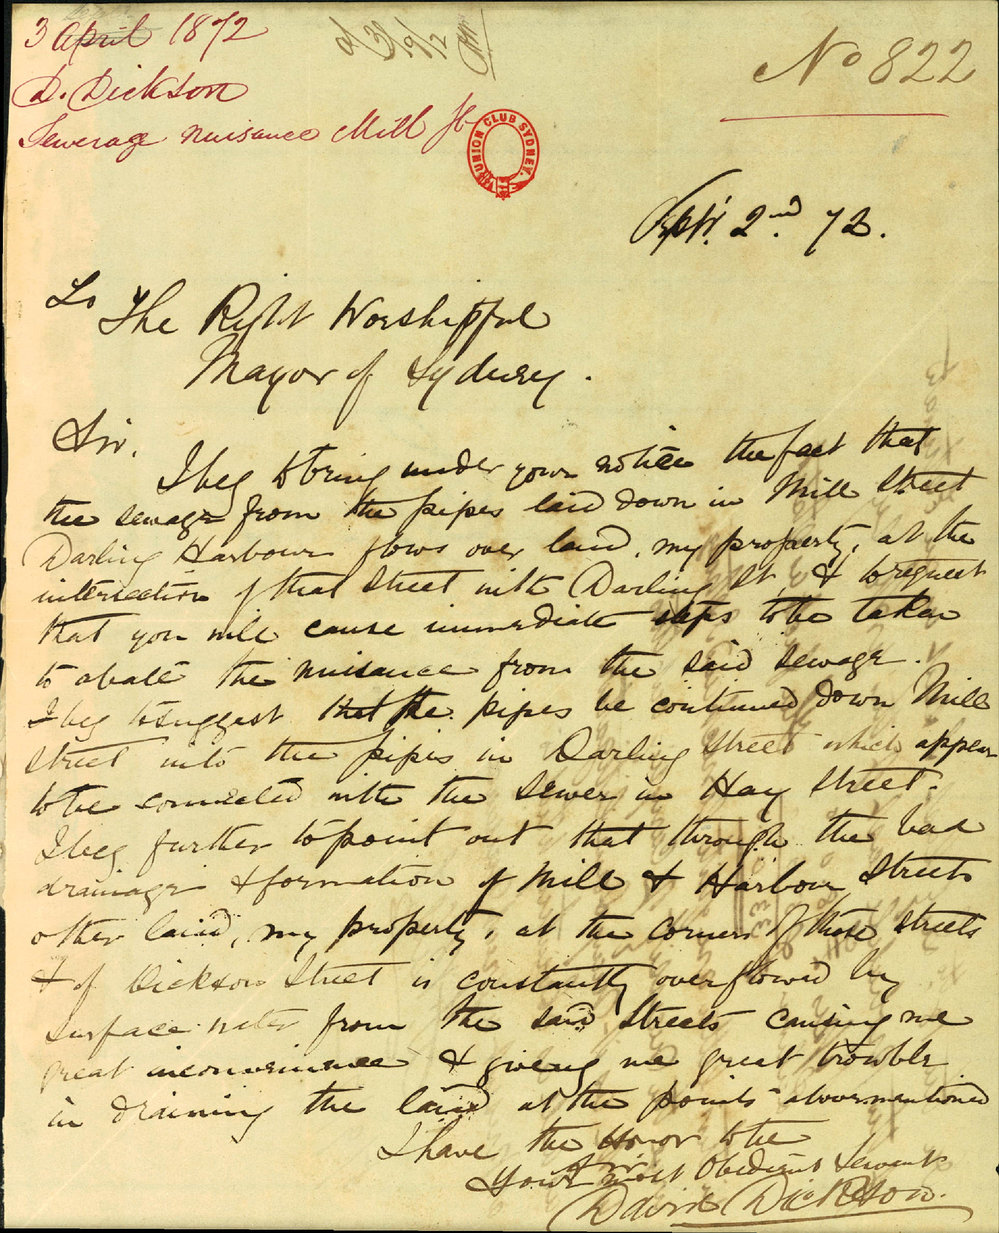 3 April 1872
D. Dickson
Sewerage nuisance Mill St
No 822
UNION CLUB SYDNEY.
2nd. 72.
To The Right Worshipful
Mayor of Sydney.
Sir.
I beg to bring under your notice the fact that
the sewage from the pipes laid down in Mill Street
Darling Harbour flows over land, my property, at the
intersection of that Street with Darling St, & to request
that you will cause immediate steps to be taken
to abate the nuisance from the said sewage.
I beg to suggest that the pipes be continued down Mill
Street into the pipes in Darling Street which appear
to be connected with the Sewer in Hay Street.
I beg further to point out that through the bad
drainage & formation of Mill & Harbour Streets
other land, my property, at the corners of those Streets
& of Dickson Street is constantly overflowed by
surface water from the said Streets causing me
great inconvenience & giving me great trouble
in draining the land at the points abovementioned
I have the Honor to be
Sir
Your most Obedient Servant
David Dickson.